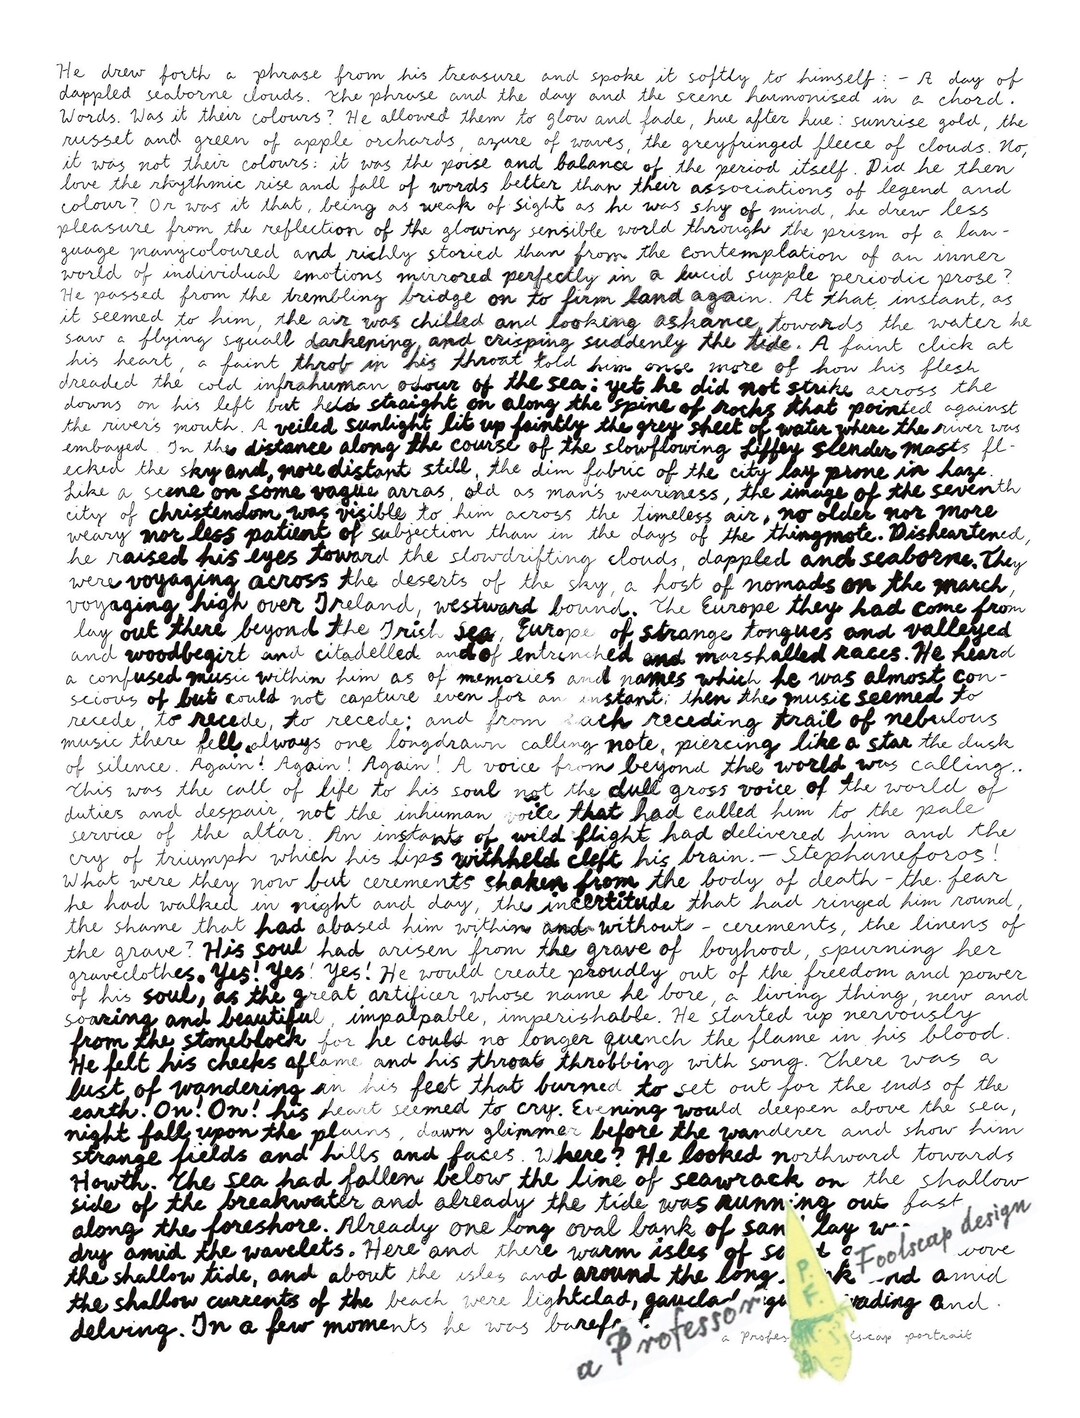 He drew forth a phrase from his treasure and spoke it softly to himself: - A day of
dappled seaborne clouds. The phrase and the day and the scene harmonised in a chord.
Words. Was it their colours? He allowed them to glow and fade, hue after hue: sunrise gold, the
russet and green of apple orchards, azure of waves, the greyfringed fleece of clouds. No,
it was not their colours: it was the poise and balance of the period itself. Did he then
love the rhythmic rise and fall of words better than their associations of legend and
colour? Or was it that, being as weak of sight as he was shy of mind, he drew less
pleasure from the reflection of the glowing sensible world through the prism of a lan-
guage manycoloured and richly storied than from the contemplation of an inner
world of individual emotions mirrored perfectly in a lucid supple periodic prose?
He passed from the trembling bridge on to firm land again. At that instant, as
it seemed to him, the air was chilled and looking askance towards the water he
saw a flying squall darkening and crisping suddenly the tide. A faint click at
his heart, a faint throb in his throat told him once more of how his flesh
dreaded the cold infrahuman odour of the sea: yet he did not strike across the
downs on his left but held straight on along the spine of rocks that pointed against
the river's mouth. A veiled sunlight lit up faintly the grey sheet of water where the river was
embayed. In the distance along the course of the slowflowing Liffey slender masts fl-
ecked the sky and, more distant still, the dim fabric of the city lay prone in haze.
Like a scene on some vague arras, old as man's weariness, the image of the seventh
city of christendom was visible to him across the timeless air, no older nor more
weary nor less patient of subjection than in the days of the thingmote. Disheartened,
he raised his eyes toward the slowdrifting clouds, dappled and seaborne. They
were voyaging across the deserts of the sky, a host of nomads on the march,
voyaging high over Ireland, westward bound. The Europe they had come from
lay out there beyond the Irish Sea, Europe of strange tongues and valleyed
and woodbegirt and citadelled and of entrenched and marshalled races. He heard
a confused music within him as of memories and names which he was almost con-
scious of but could not capture even for an instant; then the music seemed to
recede, to recede, to recede; and from each receding trail of nebulous
music there fell always one longdrawn calling note, piercing like a star the dusk
of silence. Again! Again! Again! A voice from beyond the world was calling..
This was the call of life to his soul not the dull gross voice of the world of
duties and despair, not the inhuman voice that had called him to the pale
service of the altar. An instant of wild flight had delivered him and the
cry of triumph which his lips withheld cleft his brain. - Stephaneforos!
What were they now but cerements shaken from the body of death - the fear
he had walked in night and day, the incertitude that had ringed him round,
the shame that had abased him within and without - cerements, the linens of
the grave? His soul had arisen from the grave of boyhood, spurning her
graveclothes. Yes! Yes! Yes! He would create proudly out of the freedom and power
of his soul, as the great artificer whose name he bore, a living thing, new and
soaring and beautiful, impalpable, imperishable. He started up nervously
from the stoneblock for he could no longer quench the flame in his blood.
He felt his cheeks aflame and his throat throbbing with song. There was a
lust of wandering in his feet that burned to set out for the ends of the
earth. On! On! his heart seemed to cry. Evening would deepen above the sea,
night fall upon the plains, dawn glimmer before the wanderer and show him
strange fields and hills and faces. Where? He looked northward towards
Howth. The sea had fallen below the line of seawrack on the shallow
side of the breakwater and already the tide was running out fast
along the foreshore. Already one long oval bank of sand lay
dry amid the wavelets. Here and there warm isles of
the shallow tide, and about the isles and around the long amid
the shallow currents of the beach were lightclad, wading and.
delving. In a few moments he was
a Professor P.F. Foolscap design
a portrait